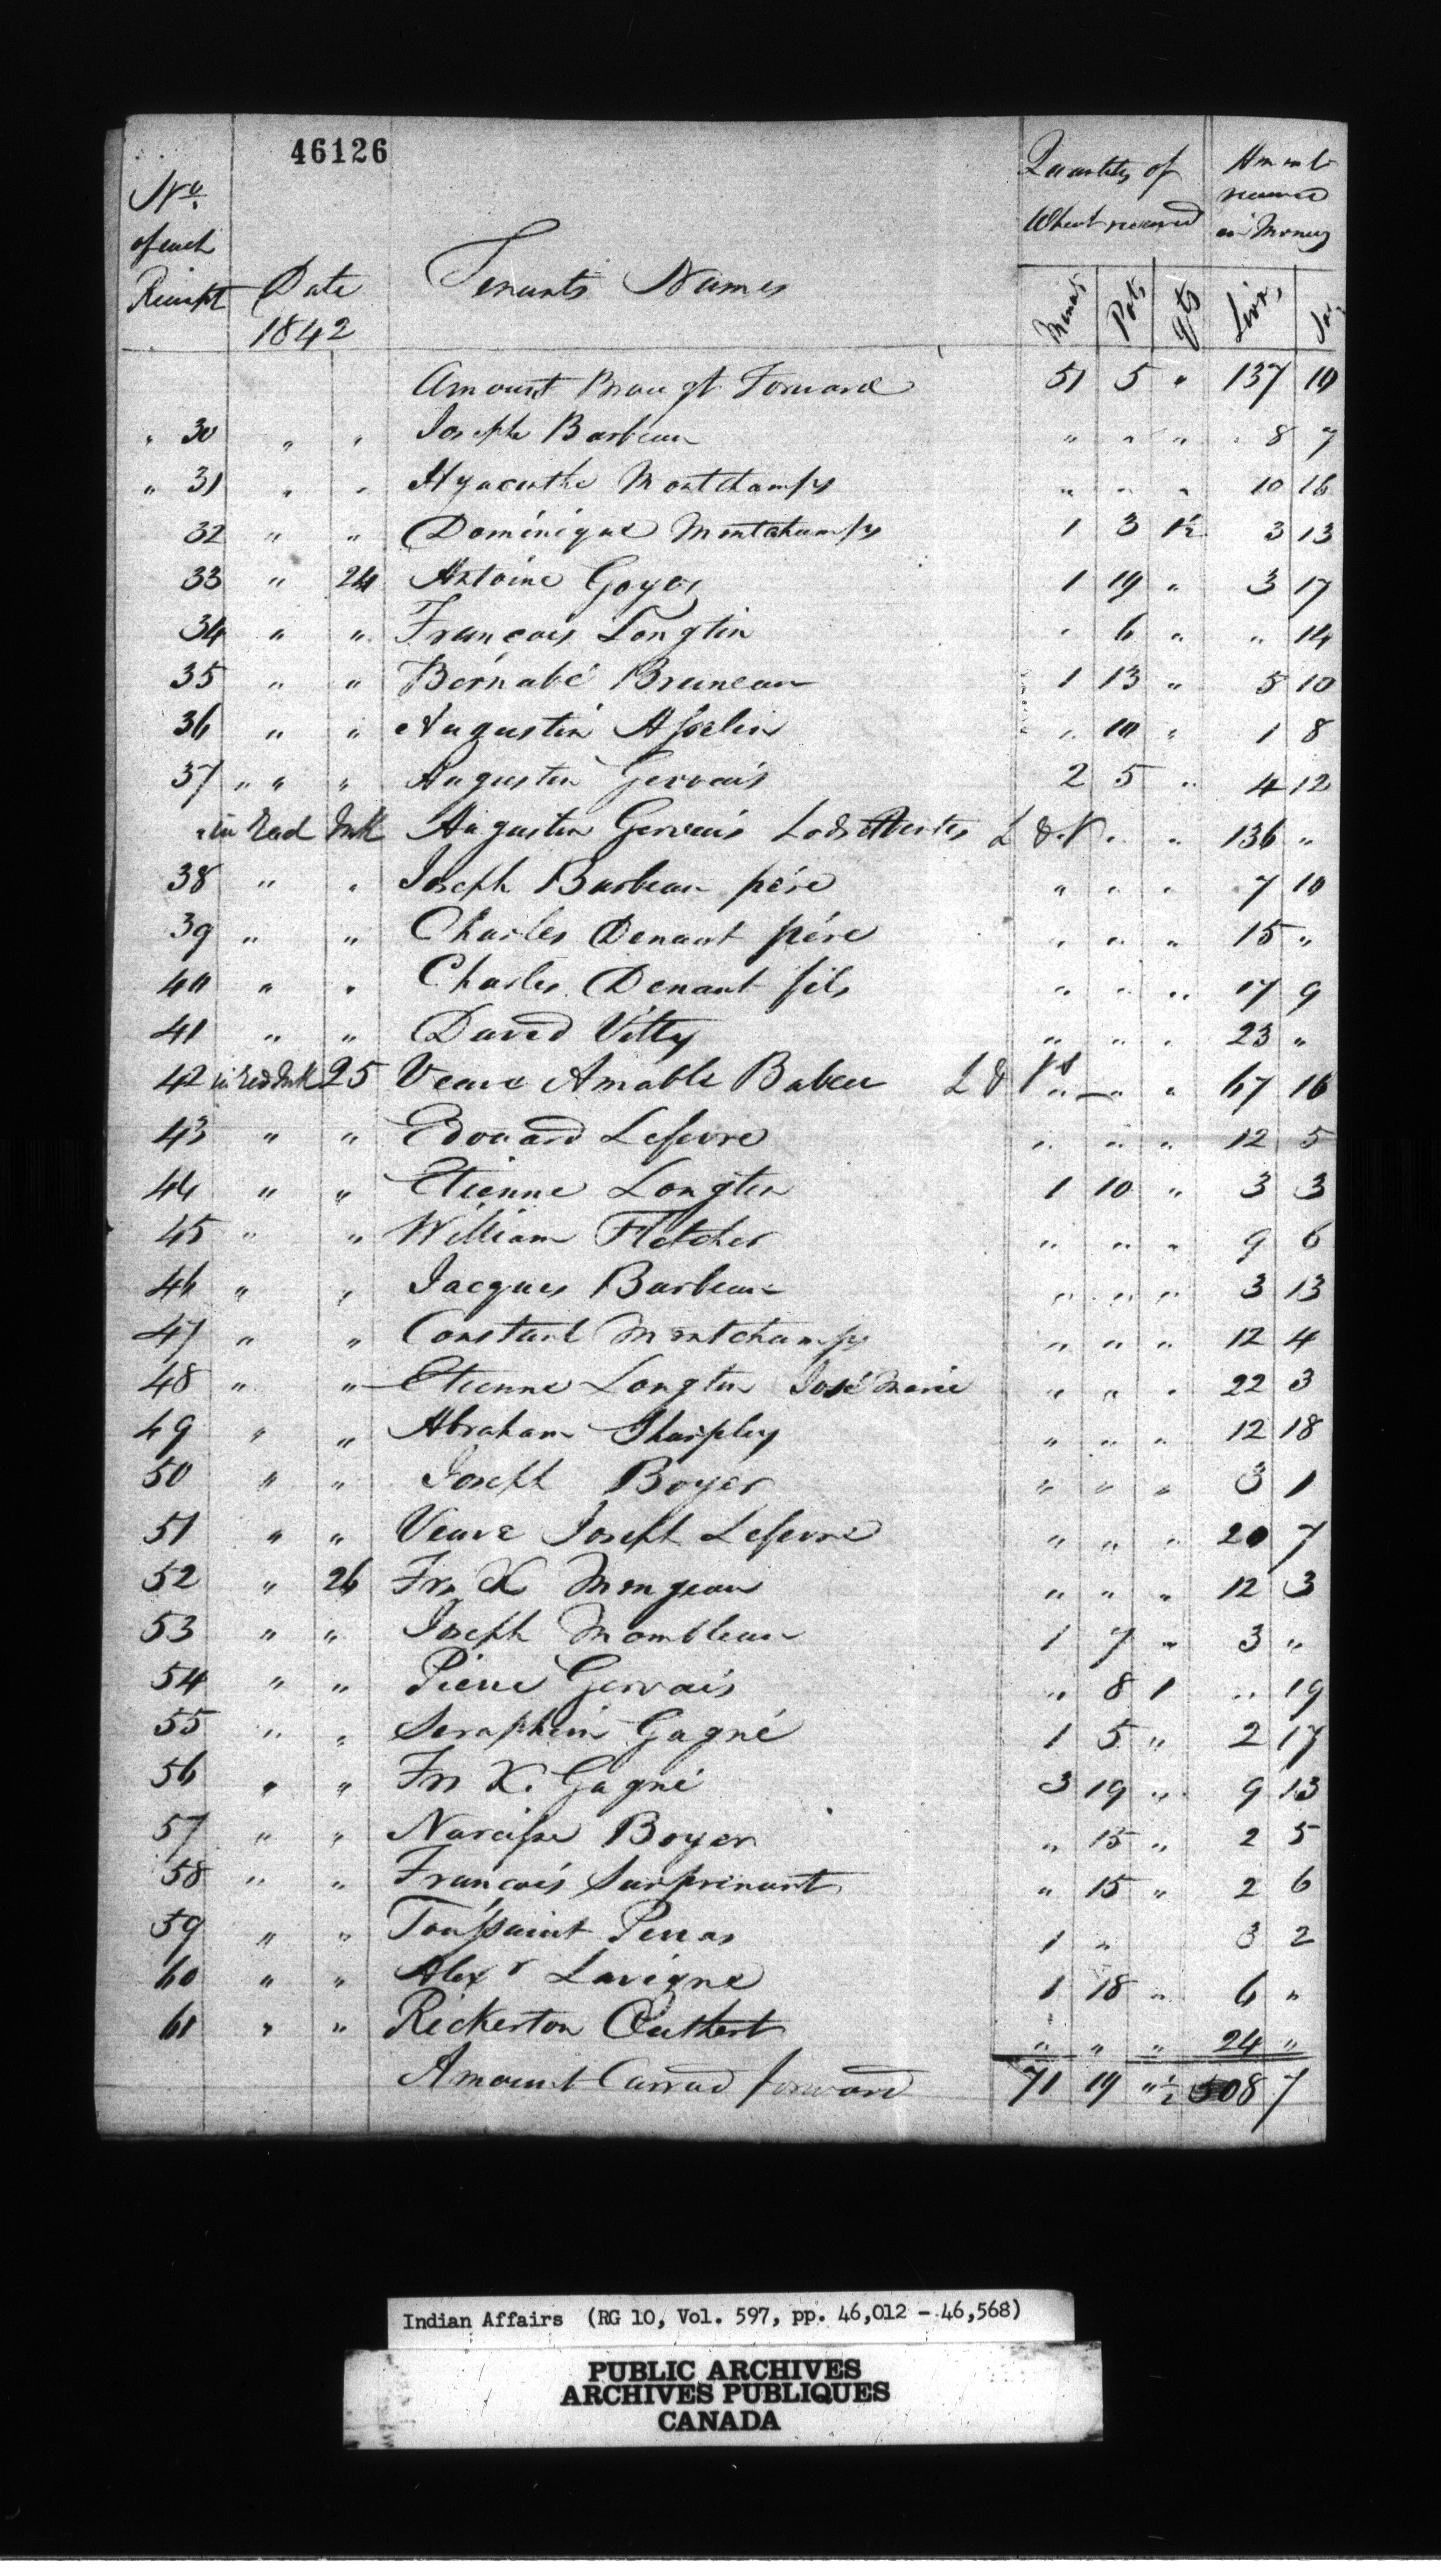 46126
No. of each Receipt
Date 1842
Tenants Names
Quantity of Wheat received
Amount received in Money
Minots Pots qts Livrs Sos
Amount Braugt Forward 51 5 " 137 10
" 30 " " Joseph Barbeau " " " 8 7
" 31 " " Hyacinthe Montchamps " " " 10 16
32 " " Dominique Montchamps 1 3 1½ 3 13
33 " 24 Antoine Goyer 1 19 " 3 17
34 " " François Longtin " 6 " " 14
35 " " Bérnabé Bruneau 1 13 " 5 10
36 " " Augustin Asselin " 10 " 1 8
37 " " " Augustin Gervais 2 5 " 4 12
" in Red Ink Augustin Gervais Lods & Ventes L & V " " 136 "
38 " " Joseph Barbeau pére " " " 7 10
39 " " Charles Denaut pére " " " 15 "
40 " " Charles Denaut fils " " " 17 9
41 " " David Vitty " " " 23 "
42 in Red Ink 25 Veuve Amable Babeu L & Vs " " " 67 16
43 " " Edouard Lefevre " " " 12 5
44 " " Etienne Longtin 1 10 " 3 3
45 " " William Fletcher " " " 9 6
46 " " Jacques Barbeau " " " 3 13
47 " " Constant Montchamps " " " 12 4
48 " " Etienne Longtin José Marie " " " 22 3
49 " " Abraham Sharpley " " " 12 18
50 " " Joseph Boyer " " " 3 1
51 " " Veuve Joseph Lefevre " " " 20 7
52 " 26 Frs X Mongeau " " " 12 3
53 " " Joseph Mombleau 1 7 " 3 "
54 " " Pierre Gervais " 8 1 " 19
55 " " Seraphin Gagné 1 5 " 2 17
56 " " Frs X. Gagné 3 19 " 9 13
57 " " Narcisse Boyer " 15 " 2 5
58 " " François Surprenant " 15 " 2 6
59 " " Toussaint Perras 1 " 3 2
60 " " Alexr Lavigne 1 18 " 6 "
61 " " Rickerton Cuthbert " " " 24 "
Amount Carrad forward 71 19 "½ 508 7
Indian Affairs (RG 10, Vol. 597, pp. 46,012 - 46,568)
PUBLIC ARCHIVES
ARCHIVES PUBLIQUES
CANADA